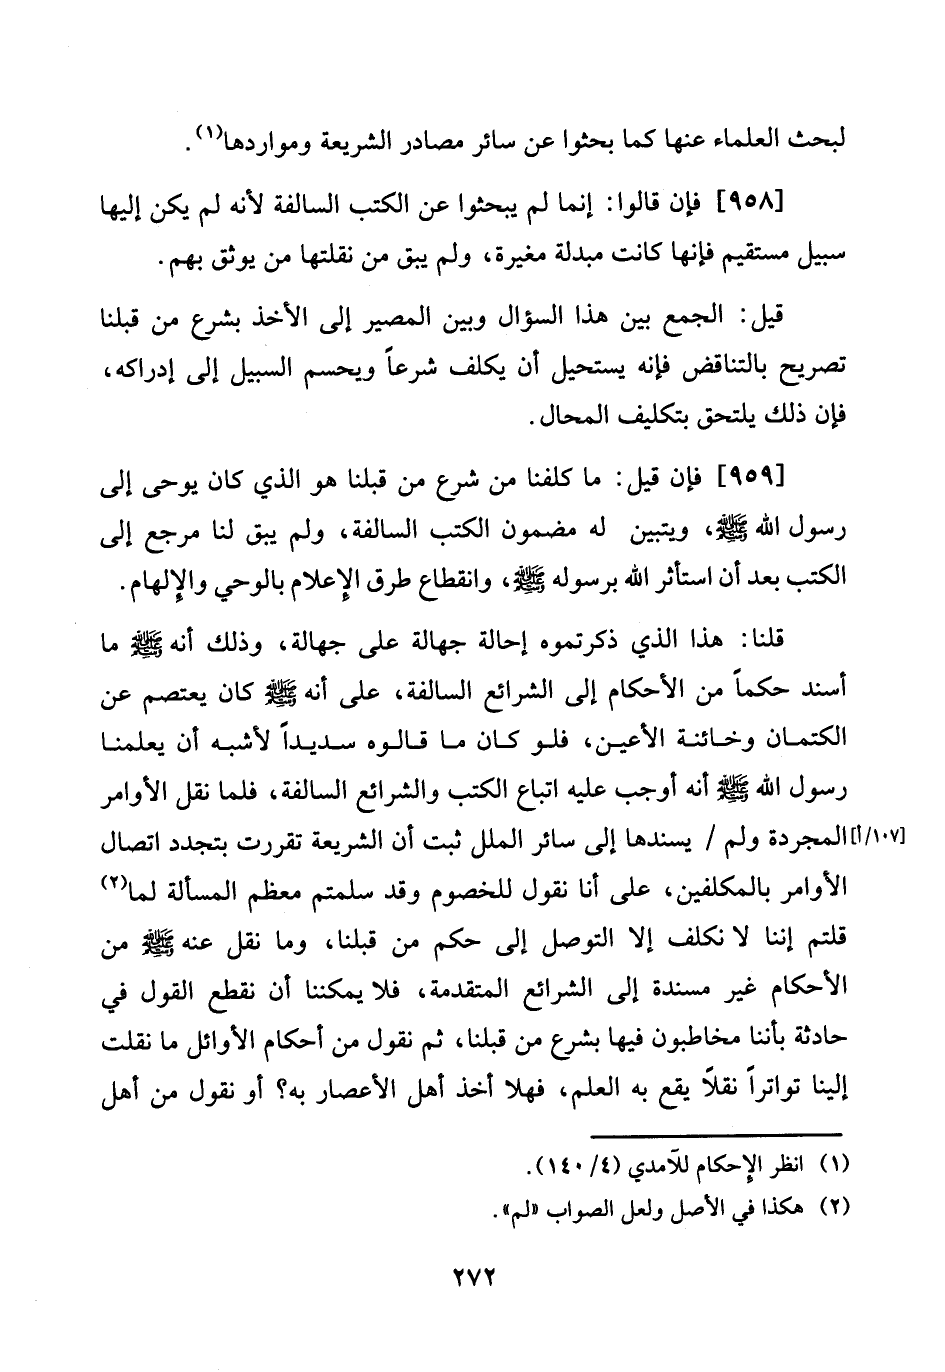 لبحث العلماء عنها كما بحثوا عن سائر مصادر الشريعة ومواردها(١).
[٩٥٨] فإن قالوا: إنما لم يبحثوا عن الكتب السالفة لأنه لم يكن إليها
سبيل مستقيم فإنها كانت مبدلة مغيرة، ولم يبق من نقلتها من يوثق بهم.
قيل: الجمع بين هذا السؤال وبين المصير إلى الأخذ بشرع من قبلنا
تصريح بالتناقض فإنه يستحيل أن يكلف شرعاً ويحسم السبيل إلى إدراكه،
فإن ذلك يلتحق بتكليف المحال.
[٩٥٩] فإن قيل: ما كلفنا من شرع من قبلنا هو الذي كان يوحى إلى
رسول الله ﷺ، ويتبين له مضمون الكتب السالفة، ولم يبق لنا مرجع إلى
الكتب بعد أن استأثر الله برسوله ﷺ، وانقطاع طرق الإعلام بالوحي والإلهام.
قلنا: هذا الذي ذكرتموه إحالة جهالة على جهالة، وذلك أنه ﷺ ما
أسند حكماً من الأحكام إلى الشرائع السالفة، على أنه ﷺ كان يعتصم عن
الكتمان وخائنة الأعين، فلو كان ما قالوه سديداً لأشبه أن يعلمنا
رسول الله ﷺ أنه أوجب عليه اتباع الكتب والشرائع السالفة، فلما نقل الأوامر
[١٠٧/أ] المجردة ولم / يسندها إلى سائر الملل ثبت أن الشريعة تقررت بتجدد اتصال
الأوامر بالمكلفين، على أنا نقول للخصوم وقد سلمتم معظم المسألة لما(٢)
قلتم إننا لا نكلف إلا التوصل إلى حكم من قبلنا، وما نقل عنه ﷺ من
الأحكام غير مسندة إلى الشرائع المتقدمة، فلا يمكننا أن نقطع القول في
حادثة بأننا مخاطبون فيها بشرع من قبلنا، ثم نقول من أحكام الأوائل ما نقلت
إلينا تواتراً نقلاً يقع به العلم، فهلا أخذ أهل الأعصار به؟ أو نقول من أهل
(١) انظر الإحكام للآمدي (٤/ ١٤٠).
(٢) هكذا في الأصل ولعل الصواب «لم».
٢٧٢